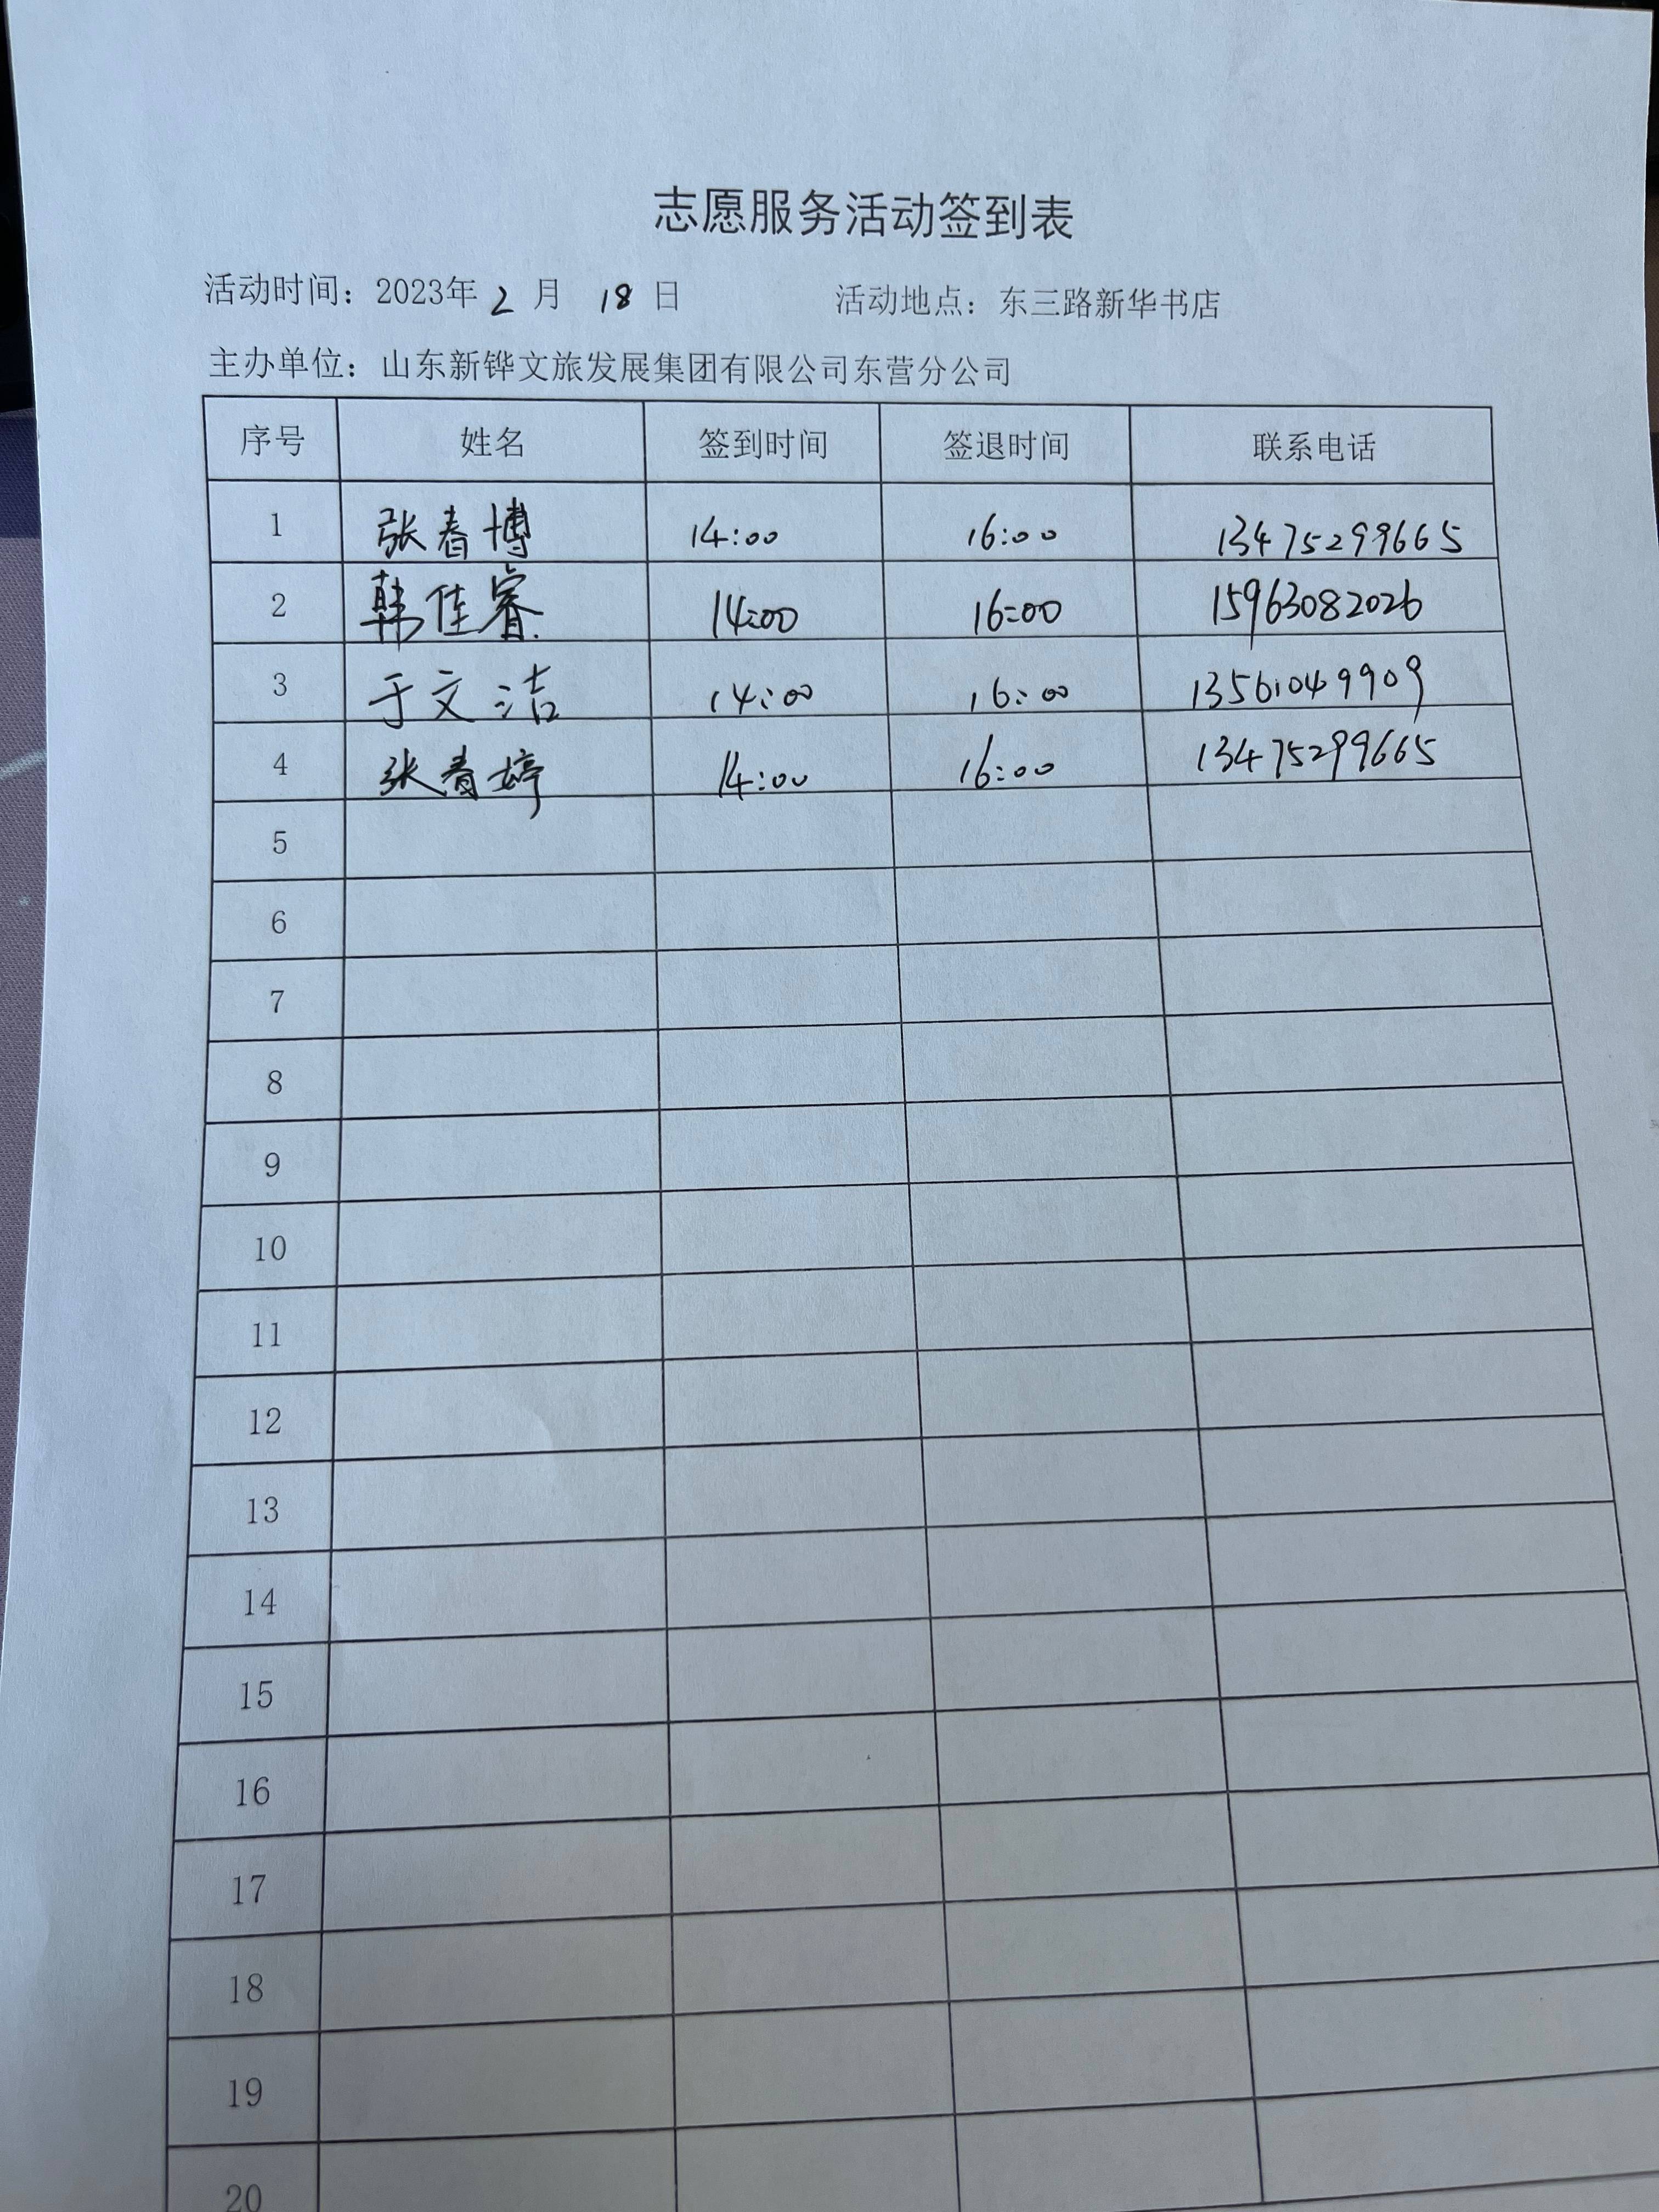 志愿服务活动签到表
活动时间：2023年 2 月 18 日 活动地点：东三路新华书店
主办单位：山东新铧文旅发展集团有限公司东营分公司
序号 姓名 签到时间 签退时间 联系电话
1 张春博 14:00 16:00 13475299665
2 韩佳睿 14:00 16:00 15963082026
3 于文洁 14:00 16:00 13561049909
4 张春婷 14:00 16:00 13475299665
5
6
7
8
9
10
11
12
13
14
15
16
17
18
19
20